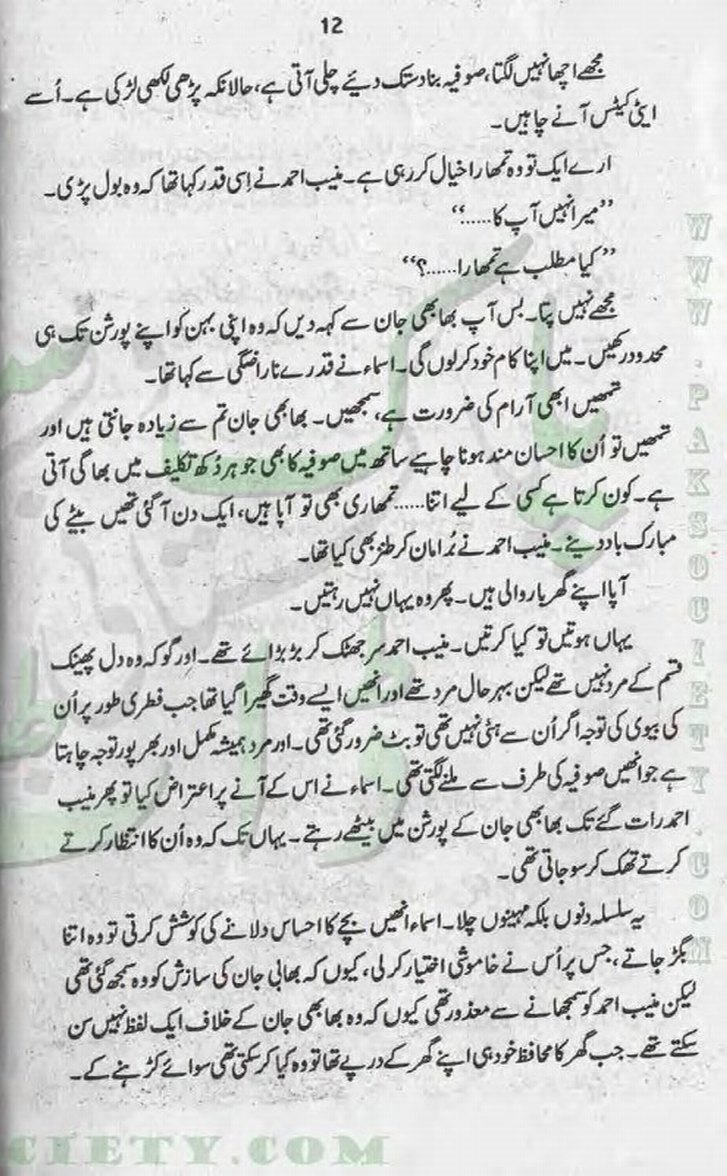 12
مجھے اچھا نہیں لگتا، صوفیہ بنا دستک دیئے چلی آتی ہے، حالانکہ پڑھی لکھی لڑکی ہے۔ اُسے
ایٹی کیٹس آنے چاہیں۔
ارے ایک تو وہ تمھارا خیال کر رہی ہے۔ منیب احمد نے اِسی قدر کہا تھا کہ وہ بول پڑی۔
’’میرا نہیں آپ کا.....‘‘
’’کیا مطلب ہے تمھارا......؟‘‘
مجھے نہیں پتا۔ بس آپ بھابھی جان سے کہہ دیں کہ وہ اپنی بہن کو اپنے پورشن تک ہی
محدود رکھیں۔ میں اپنا کام خود کر لوں گی۔ اسماء نے قدرے ناراضگی سے کہا تھا۔
تمھیں ابھی آرام کی ضرورت ہے، سمجھیں۔ بھابھی جان تم سے زیادہ جانتی ہیں اور
تمھیں تو اُن کا احسان مند ہونا چاہیے ساتھ میں صوفیہ کا بھی جو ہر دُکھ تکلیف میں بھاگی آتی
ہے۔ کون کرتا ہے کسی کے لیے اتنا...... تمھاری بھی تو آپا ہیں، ایک دن آ گئی تھیں بیٹے کی
مبارک باد دینے۔ منیب احمد نے بُرا مان کر طنز بھی کیا تھا۔
آپا اپنے گھر بار والی ہیں۔ پھر وہ یہاں نہیں رہتیں۔
یہاں ہوتیں تو کیا کرتیں۔ منیب احمد سر جھٹک کر بڑبڑائے تھے۔ اور گو کہ وہ دل پھینک
قسم کے مرد نہیں تھے لیکن بہرحال مرد تھے اور انھیں ایسے وقت گھیرا گیا تھا جب فطری طور پر اُن
کی بیوی کی توجہ اگر اُن سے ہٹی نہیں تھی تو بٹ ضرور گئی تھی۔ اور مرد ہمیشہ مکمل اور بھرپور توجہ چاہتا
ہے جو انھیں صوفیہ کی طرف سے ملنے لگتی تھی۔ اسماء نے اس کے آنے پر اعتراض کیا تو پھر منیب
احمد رات گئے تک بھابھی جان کے پورشن میں بیٹھے رہتے۔ یہاں تک کہ وہ اُن کا انتظار کرتے
کرتے تھک کر سو جاتی تھی۔
یہ سلسلہ دنوں بلکہ مہینوں چلا۔ اسماء انھیں بچے کا احساس دلانے کی کوشش کرتی تو وہ اتنا
بگڑ جاتے، جس پر اُس نے خاموشی اختیار کر لی، کیوں کہ بھابی جان کی سازش کو وہ سمجھ گئی تھی
لیکن منیب احمد کو سمجھانے سے معذور تھی کیوں کہ وہ بھابھی جان کے خلاف ایک لفظ نہیں سن
سکتے تھے۔ جب گھر کا محافظ خود ہی اپنے گھر کے درپے تھا تو وہ کیا کر سکتی تھی سوائے کڑھنے کے۔
WWW.PAKSOCIETY.COM
CIETY.COM